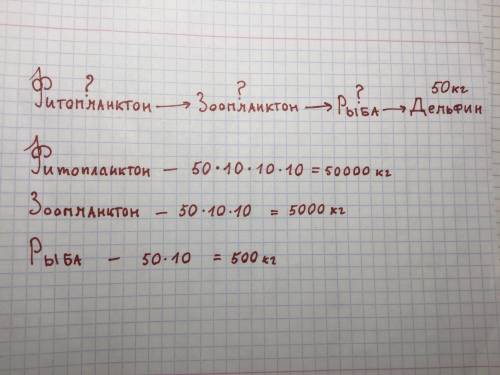 ? ? ? 50кг
Фитопланктон → Зоопланктон → Рыба → Дельфин
Фитопланктон - 50·10·10·10 = 50000 кг
Зоопланктон - 50·10·10 = 5000 кг
Рыба - 50·10 = 500 кг